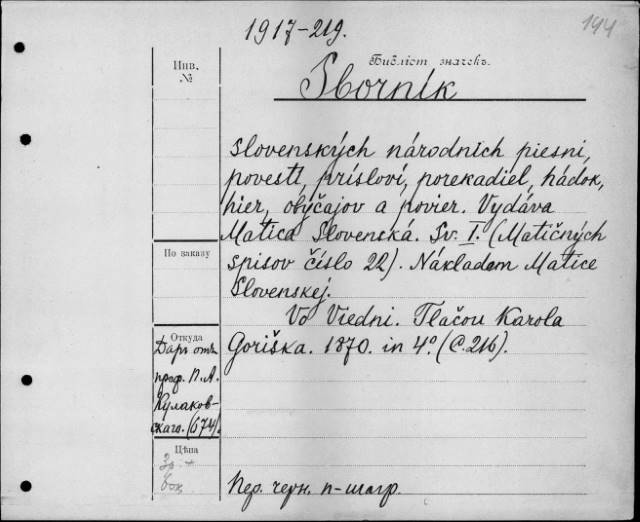 1917-219.
194
Инв.
№
Библіот значекъ.
Sborník
slovenských národních piesni,
povestí, prísloví, porekadiel, hádok,
hier, obýčajov a povier. Vydáva
Matica Slovenská. Sv. I. (Matičných
По заказу
spisov číslo 22). Nákladom Matice
Slovenskej.
Vo Viedni. Tlačou Karola
Откуда
Goriška. 1870. in 4º. (C. 216).
Даръ отъ
проф. П. А.
Кулаков-
скаго. (674).
Цѣна
Пер. черн. п-шагр.